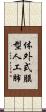 体外式膜
型人工肺